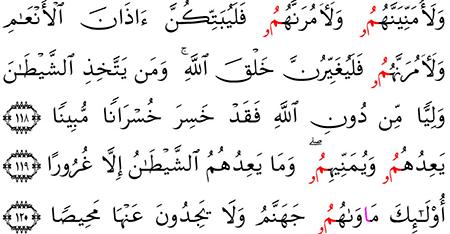 وَلَأُمَنِّيَنَّهُمُۥ وَلَأَمُرَنَّهُمُۥ فَلَيُبَتِّكُنَّ ءَاذَانَ ٱلْأَنْعَٰمِ
وَلَأَمُرَنَّهُمُۥ فَلَيُغَيِّرُنَّ خَلْقَ ٱللَّهِۚ وَمَن يَتَّخِذِ ٱلشَّيْطَٰنَ
وَلِيًّا مِّن دُونِ ٱللَّهِ فَقَدْ خَسِرَ خُسْرَانًا مُّبِينًا ١١٨
يَعِدُهُمُۥ وَيُمَنِّيهِمُۥۖ وَمَا يَعِدُهُمُ ٱلشَّيْطَٰنُ إِلَّا غُرُورًا ١١٩
أُوْلَٰٓئِكَ مَاوَىٰهُمُۥ جَهَنَّمُ وَلَا يَجِدُونَ عَنْهَا مَحِيصًا ١٢٠